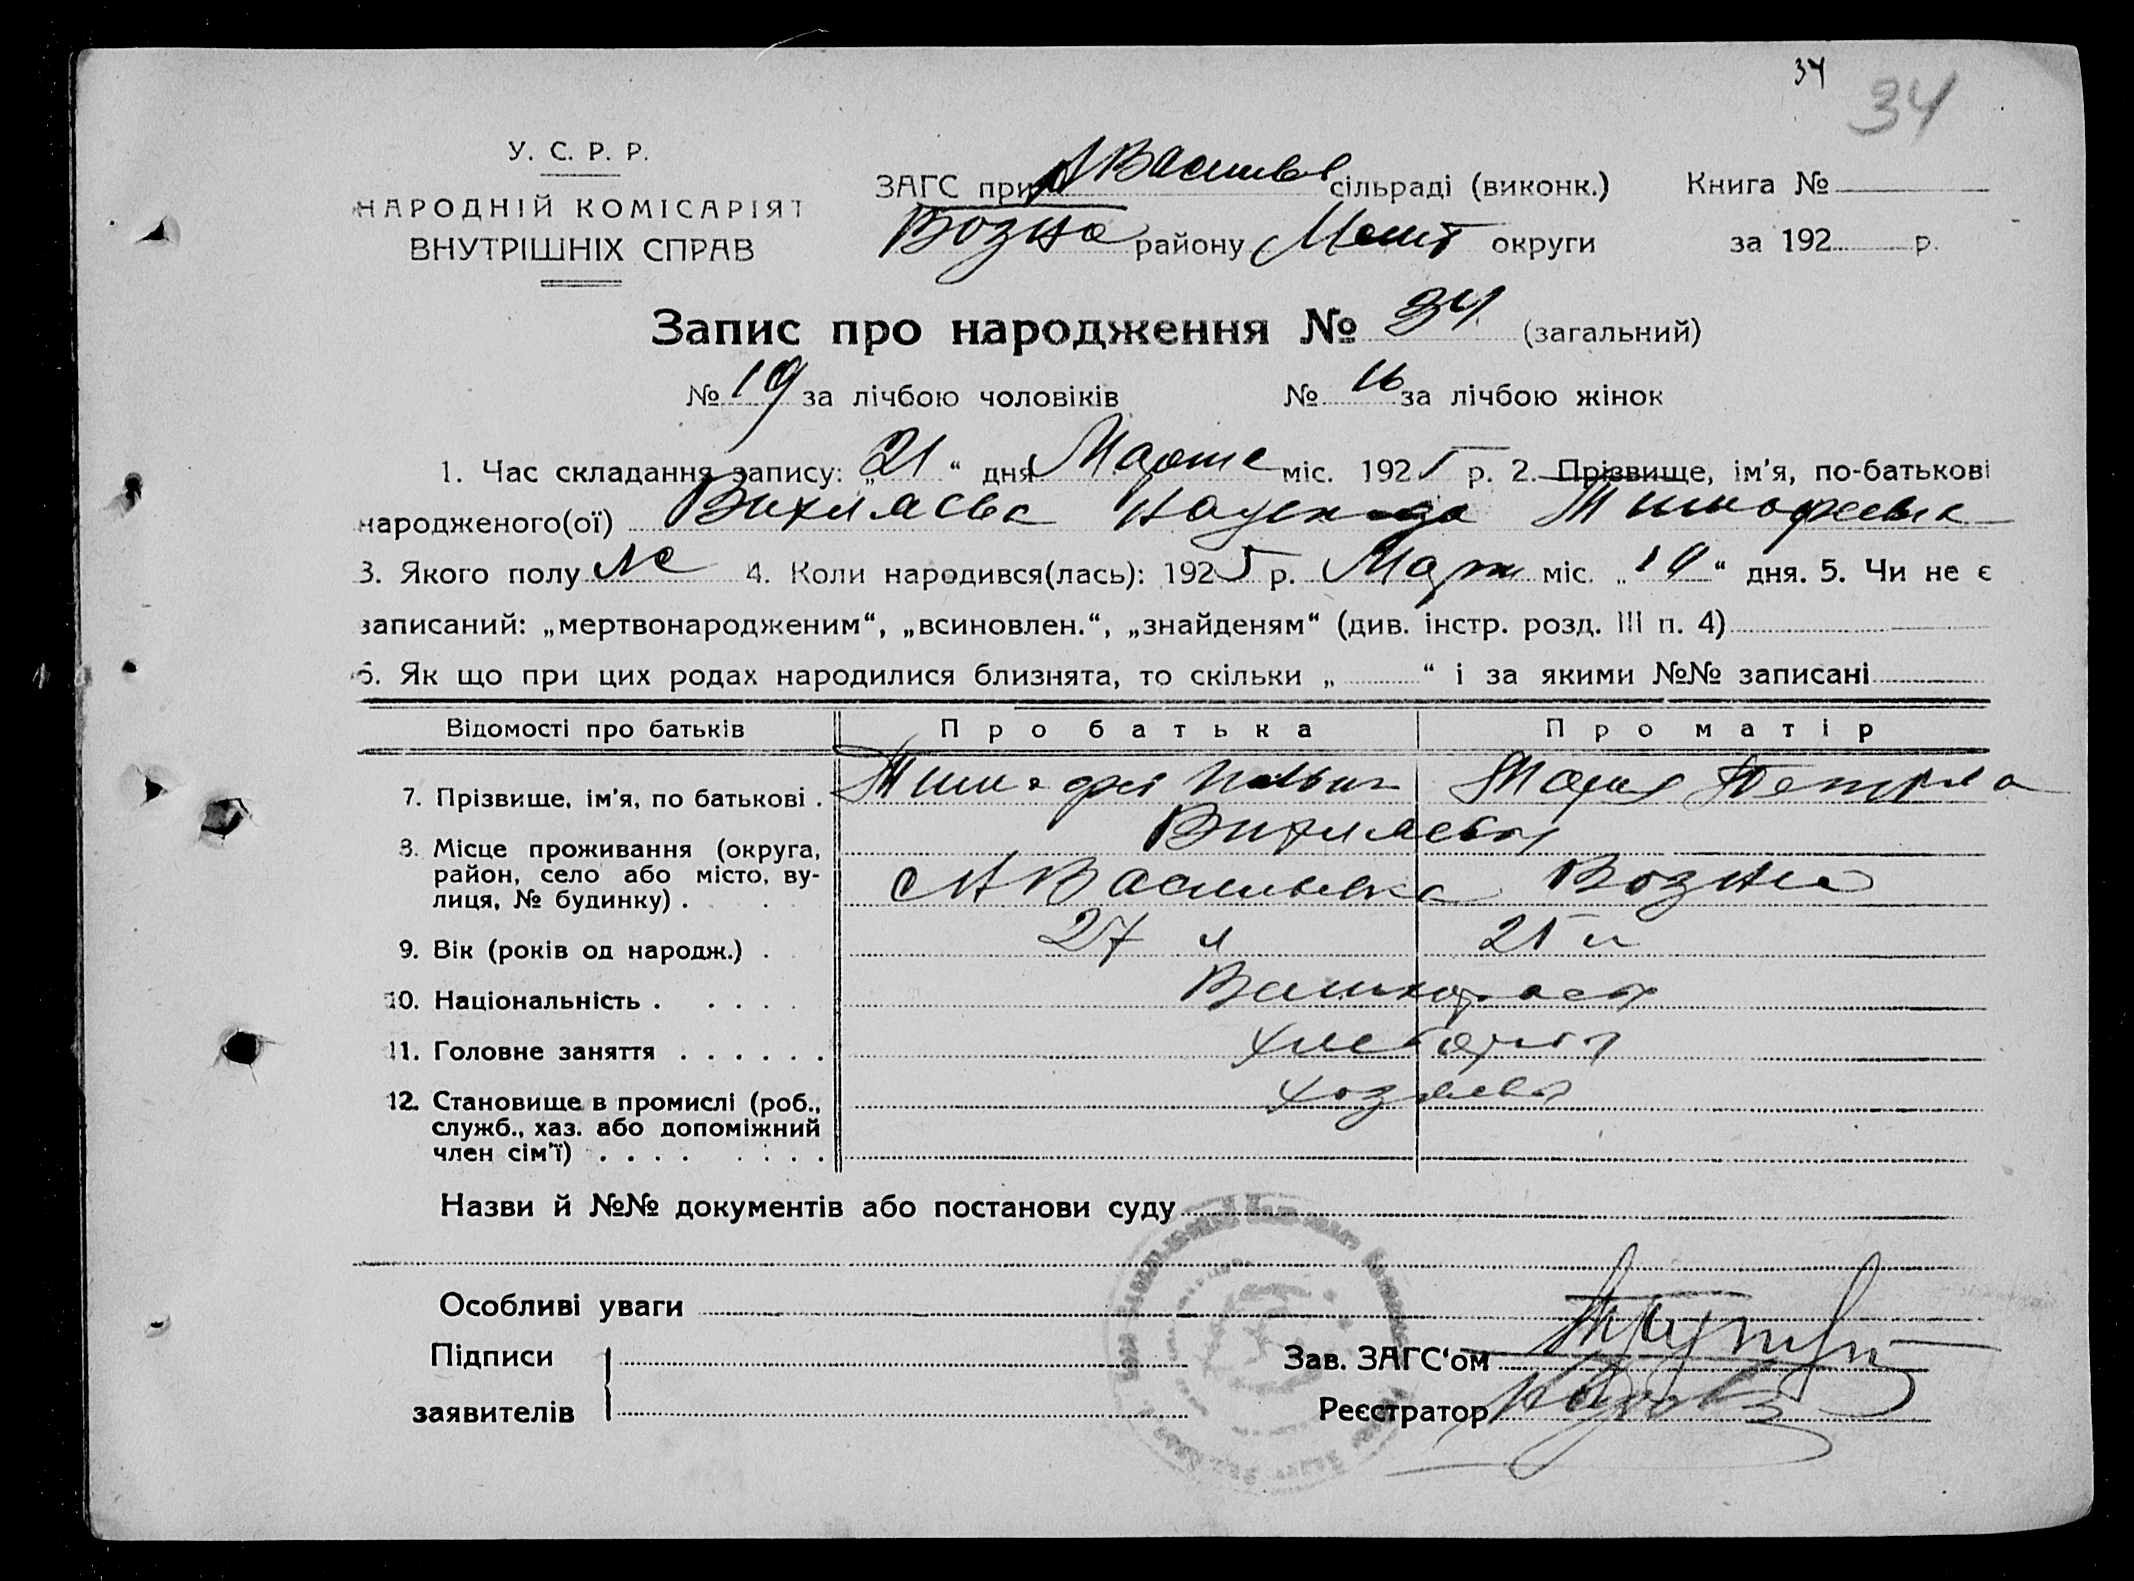 34 34
У. С. Р. Р.
НАРОДНІЙ КОМІСАРІЯТ
ВНУТРІШНІХ СПРАВ
ЗАГС при А Васильев сільраді (виконк.) Книга №
Возне району Меліт округи за 192 р.
Запис про народження № 34 (загальний)
№ 19 за лічбою чоловіків № 16 за лічбою жінок
1. Час складання запису: „21“ дня Марта міс. 1925 р. 2. Прізвище, ім'я, по-батькові
народженого(ої) Вихляева Надежда Тимофеевна
3. Якого полу 4. Коли народився(лась): 1925 р. Март міс. „19“ дня. 5. Чи не є
записаний: „мертвонародженим“, „всиновлен.“, „знайденям“ (див. інстр. розд. III п. 4)
6. Як що при цих родах народилися близнята, то скільки „ “ і за якими №№ записані
Відомості про батьків Про батька Про матір
7. Прізвище, ім'я, по батькові . Тимофей Мария Петровна
Вихляевы
8. Місце проживання (округа,
район, село або місто, ву-
лиця, № будинку) . А Васильевка Возне
9. Вік (років од народж.) . 27 л 25 л
10. Національність . . . . .
11. Головне заняття . . . . . . хлебороб
12. Становище в промислі (роб.,
служб., хаз. або допоміжний
член сім'ї) . . . . . . . . хозяева
Назви й №№ документів або постанови суду
Особливі уваги
Підписи
заявителів
Зав. ЗАГС‘ом
Реєстратор